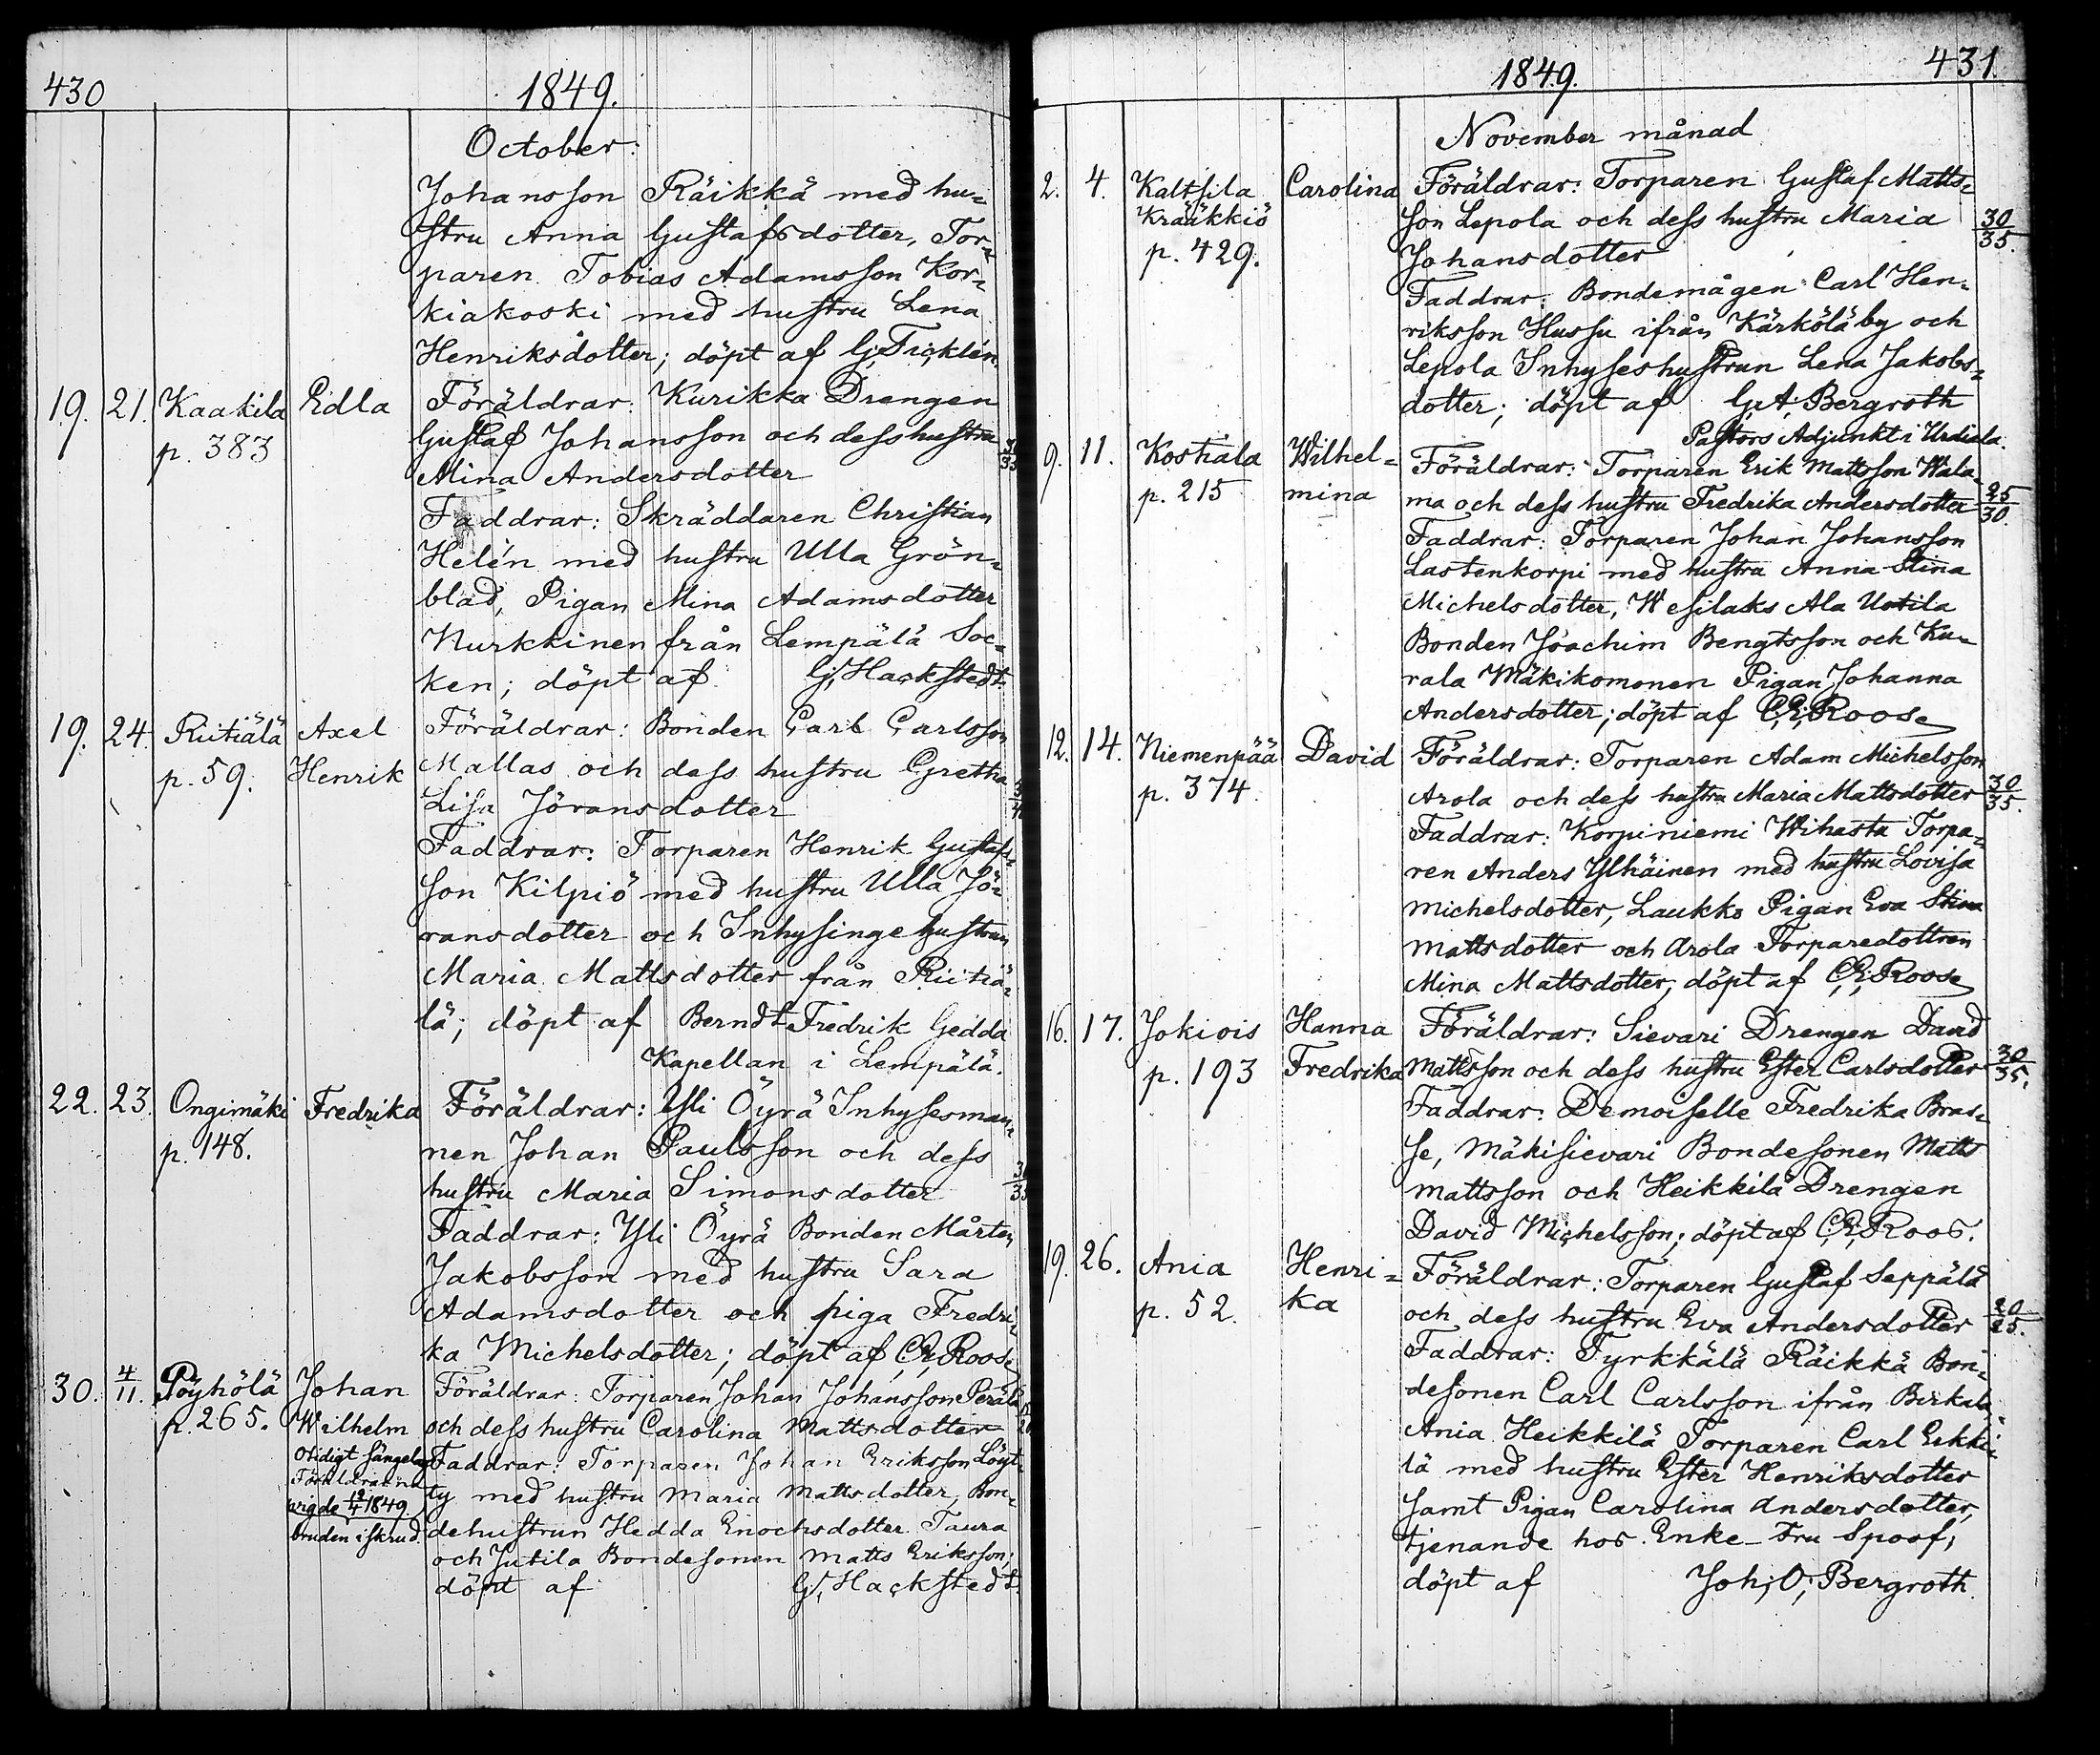 430
1849.
October:
Johansson Räikkä med hu=
stru Anna Gustafsdotter, Tor=
paren Tobias Adamsson Kor=
kiakoski med hustru Lena
Henriksdotter; döpt af G, Ticklén.
19. 21. Kaakila Edla Föräldrar: Kurikka Drengen
p. 383 Gustaf Johansson och dess hustru
Mina Andersdotter
Faddrar: Skräddaren Christian
Helén med hustru Ulla Grön=
blad, Pigan Mina Adamsdotter
Nurkkinen från Lempälä Soc=
ken; döpt af G, Hackstedt.
19. 24. Riitiälä Axel Föräldrar: Bonden Carl Carlsson
p. 59. Henrik Mallas och dess hustru Gretha
Lisa Jöransdotter
Faddrar: Torparen Henrik Gustafs=
son Kilpiö med hustru Ulla Jö=
ransdotter och Inhysinge hustrun
Maria Mattsdotter från Riitiä=
lä; döpt af Berndt Fredrik Gedda
Kapellan i Lempälä.
22. 23. Ongimäki Fredrika Föräldrar: Yli Öyrä Inhysesman=
p. 148. nen Johan Paulsson och dess
hustru Maria Simonsdotter
Faddrar: Yli Öyrä Bonden Mårten
Jakobsson med hustru Sara
Adamsdotter och piga Fredri=
ka Michelsdotter; döpt af C, E, Roos.
30. 4/11. Pöyhölä Johan Föräldrar: Torparen Johan Johansson Perälä
p. 265. Wilhelm och dess hustru Carolina Mattsdotter
Otidigt sängelag Faddrar: Torparen Johan Eriksson Löyt=
Föräldrarna ty med hustru Maria Mattsdotter, Bon=
wigde 1849 dehustrun Hedda Enochsdotter Taura
bruden i skrud. och Jutila Bondesonen Matts Eriksson;
döpt af G, Hackstedt.
431.
1849.
November månad
2. 4. Kaltsila Carolina Föräldrar: Torparen Gustaf Matts=
Krääkkiö son Lepola och dess hustru Maria 30/35.
p. 429. Johansdotter
Faddrar: Bondemågen Carl Hen=
riksson Hussu ifrån Kärkölä by och
Lepola Inhyseshustrun Lena Jakobs=
dotter; döpt af G, A, Bergroth
Pastors Adjunkt i Urdiala.
9. 11. Koskiala Wilhel= Föräldrar: Torparen Erik Mattsson Wala=
p. 215 mina ma och dess hustru Fredrika Andersdotter 25/30.
Faddrar: Torparen Johan Johansson
Lastenkorpi med hustru Anna Stina
Michelsdotter, Wesilaks Ala Uotila
Bonden Joachim Bengtsson och Ku=
rala Mäkikomonen Pigan Johanna
Andersdotter; döpt af C, E, Roos.
12. 14. Niemenpää David Föräldrar: Torparen Adam Michelsson
p. 374. Arola och dess hustru Maria Mattsdotter 30/35.
Faddrar: Korpiniemi Wihasta Torpa=
ren Anders Ylhäinen med hustru Lovisa
Michelsdotter, Laukko Pigan Eva Stina
Mattsdotter och Arola Torparedottren
Mina Mattsdotter; döpt af C, E, Roos.
16. 17. Jokiois Hanna Föräldrar: Sievari Drengen David
p. 193 Fredrika Mattsson och dess hustru Ester Carlsdotter 30/35.
Faddrar: Demoiselle Fredrika Bras=
se, Mäkisievari Bondesonen Matts
Mattsson och Heikkilä Drengen
David Michelsson; döpt af C, E, Roos.
19. 26. Ania Henri= Föräldrar: Torparen Gustaf Seppälä
p. 52. ka och dess hustru Eva Andersdotter 20/25.
Faddrar: Tyrkkälä Räikkä Bon=
desonen Carl Carlsson ifrån Birkala,
Ania Heikkilä Torparen Carl Erkki=
lä med hustru Ester Henriksdotter
samt Pigan Carolina Andersdotter,
tjenande hos Enke-Fru Spoof;
döpt af Joh, O, Bergroth.